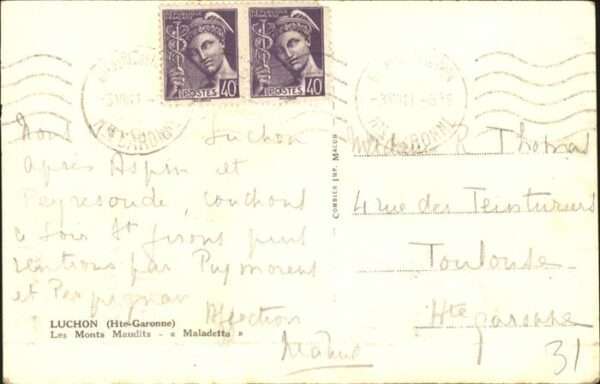 RÉPUBLIQUE FRANÇAISE
POSTES 40
RÉPUBLIQUE FRANÇAISE
POSTES 40
Luchon
après Aspin et
Peyresourde, couchons
ce soir St Girons puis
rentrons par Puymorens
et Perpignan
Affection
LUCHON (Hte-Garonne)
Les Monts Maudits - « Maladetta »
COMBIER IMP. MACON
Madame R Thomas
4 rue des Teinturiers
Toulouse
Hte Garonne
31